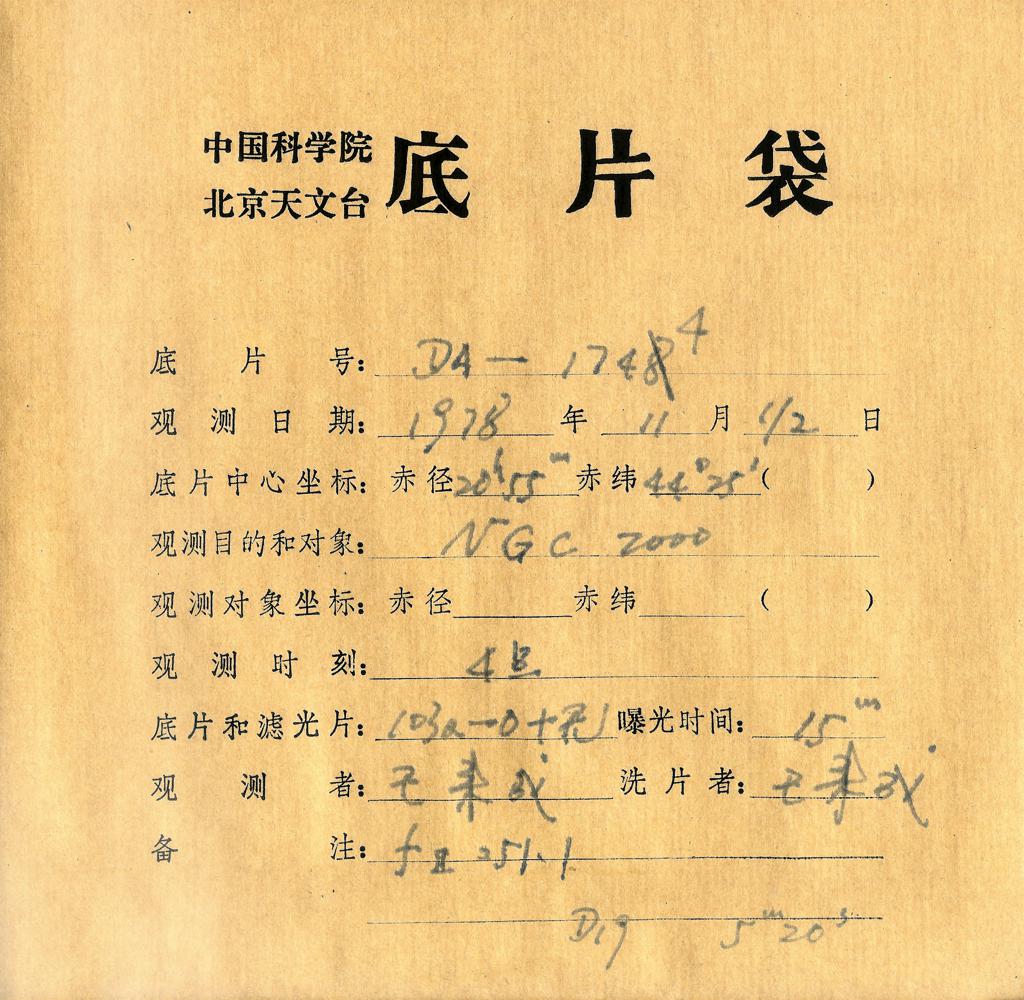 中国科学院
北京天文台 底片袋
底片号: DA—1748 4
观测日期: 1978 年 11 月 1/2 日
底片中心坐标: 赤径 20h55m 赤纬 44°25′ ( )
观测目的和对象: NGC 7000
观测对象坐标: 赤径 赤纬 ( )
观测时刻: 4
底片和滤光片: 103a—O+ 曝光时间: 15m
观测者: 洗片者:
备注: f 251.1
D19 5m20s